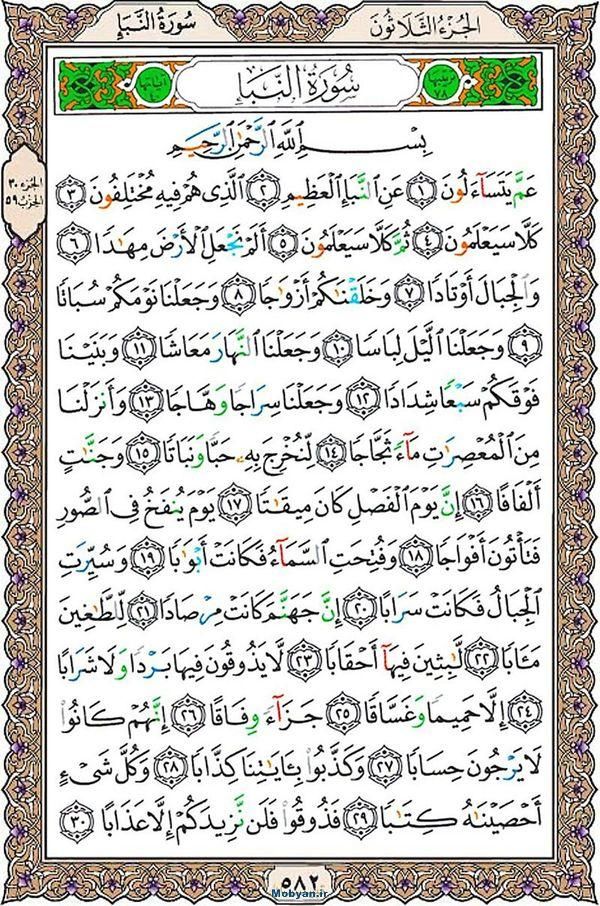 الجُزْءُ الثَّلَاثُونَ
سُورَةُ النَّبَإِ
سُورَةُ النَّبَإِ
الجزء ٣٠
الحزب ٥٩
بِسْمِ ٱللَّهِ ٱلرَّحْمَٰنِ ٱلرَّحِيمِ
عَمَّ يَتَسَآءَلُونَ ١ عَنِ ٱلنَّبَإِ ٱلْعَظِيمِ ٢ ٱلَّذِى هُمْ فِيهِ مُخْتَلِفُونَ ٣
كَلَّا سَيَعْلَمُونَ ٤ ثُمَّ كَلَّا سَيَعْلَمُونَ ٥ أَلَمْ نَجْعَلِ ٱلْأَرْضَ مِهَٰدًا ٦
وَٱلْجِبَالَ أَوْتَادًا ٧ وَخَلَقْنَٰكُمْ أَزْوَٰجًا ٨ وَجَعَلْنَا نَوْمَكُمْ سُبَاتًا
٩ وَجَعَلْنَا ٱلَّيْلَ لِبَاسًا ١٠ وَجَعَلْنَا ٱلنَّهَارَ مَعَاشًا ١١ وَبَنَيْنَا
فَوْقَكُمْ سَبْعًا شِدَادًا ١٢ وَجَعَلْنَا سِرَاجًا وَهَّاجًا ١٣ وَأَنزَلْنَا
مِنَ ٱلْمُعْصِرَٰتِ مَآءً ثَجَّاجًا ١٤ لِّنُخْرِجَ بِهِۦ حَبًّا وَنَبَاتًا ١٥ وَجَنَّٰتٍ
أَلْفَافًا ١٦ إِنَّ يَوْمَ ٱلْفَصْلِ كَانَ مِيقَٰتًا ١٧ يَوْمَ يُنفَخُ فِى ٱلصُّورِ
فَتَأْتُونَ أَفْوَاجًا ١٨ وَفُتِحَتِ ٱلسَّمَآءُ فَكَانَتْ أَبْوَٰبًا ١٩ وَسُيِّرَتِ
ٱلْجِبَالُ فَكَانَتْ سَرَابًا ٢٠ إِنَّ جَهَنَّمَ كَانَتْ مِرْصَادًا ٢١ لِّلطَّٰغِينَ
مَـَٔابًا ٢٢ لَّٰبِثِينَ فِيهَآ أَحْقَابًا ٢٣ لَّا يَذُوقُونَ فِيهَا بَرْدًا وَلَا شَرَابًا
٢٤ إِلَّا حَمِيمًا وَغَسَّاقًا ٢٥ جَزَآءً وِفَاقًا ٢٦ إِنَّهُمْ كَانُوا۟
لَا يَرْجُونَ حِسَابًا ٢٧ وَكَذَّبُوا۟ بِـَٔايَٰتِنَا كِذَّابًا ٢٨ وَكُلَّ شَىْءٍ
أَحْصَيْنَٰهُ كِتَٰبًا ٢٩ فَذُوقُوا۟ فَلَن نَّزِيدَكُمْ إِلَّا عَذَابًا ٣٠
٥٨٢
Mobyan.ir